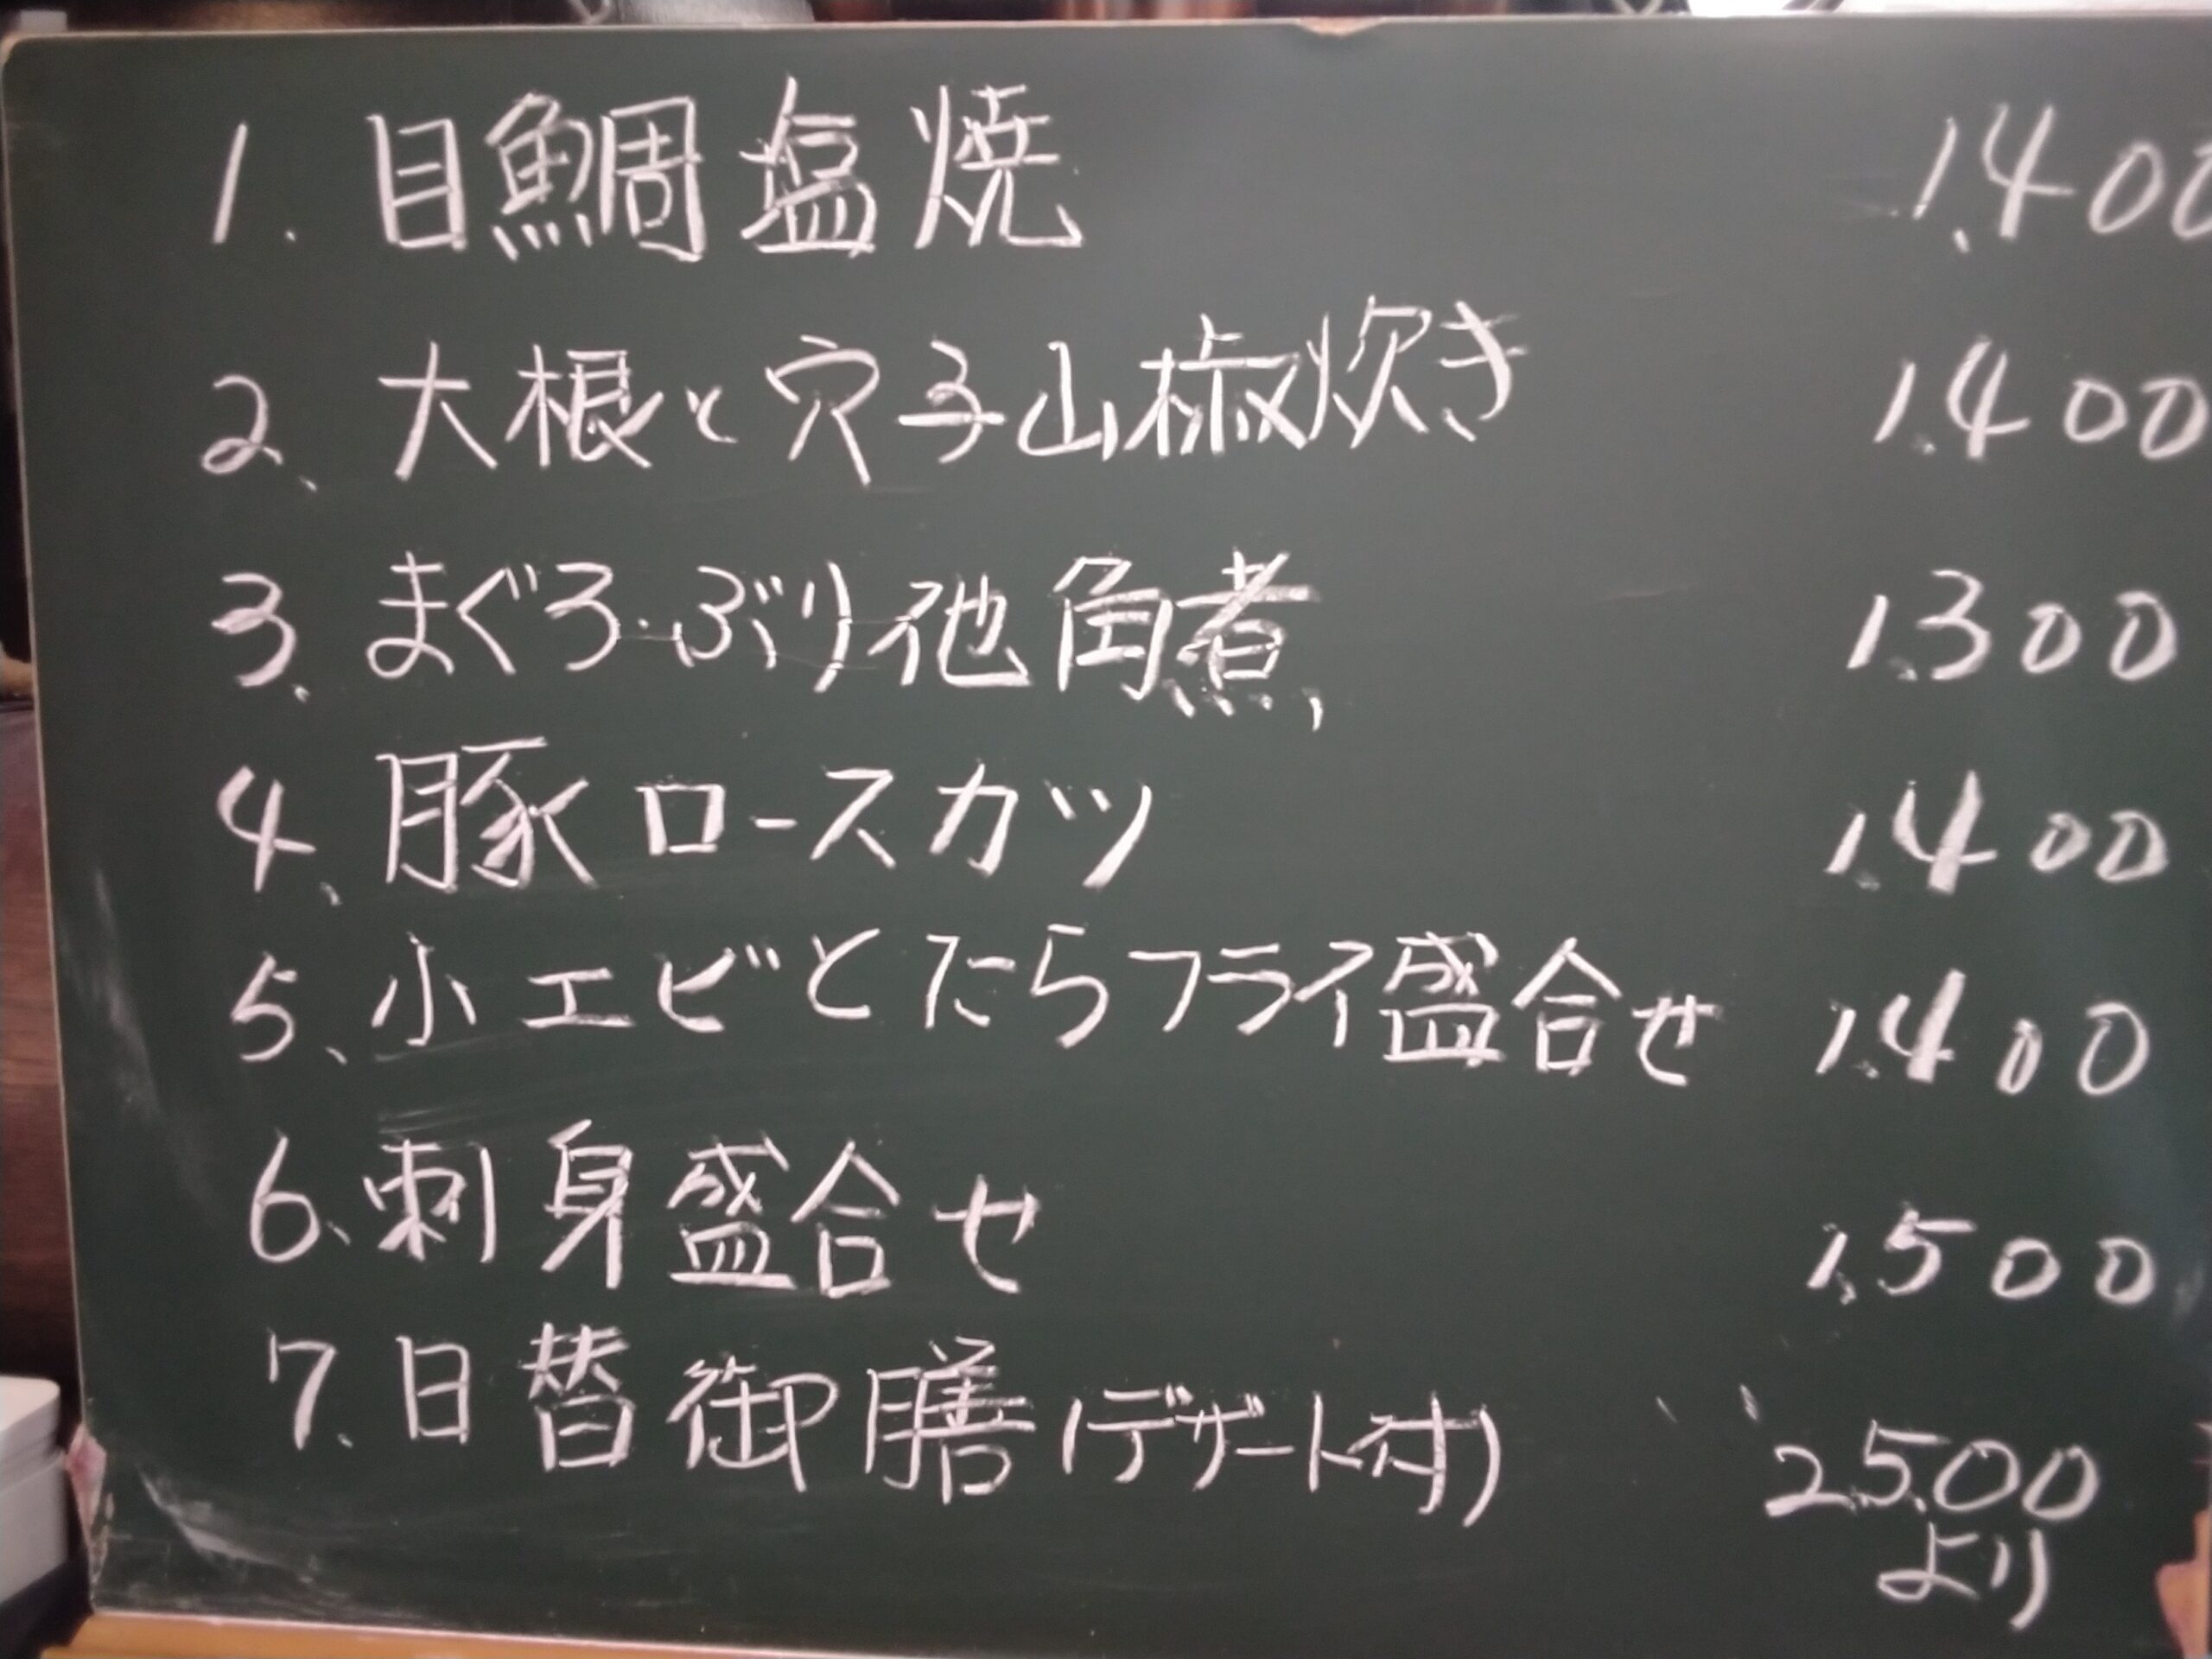 1. 目鯛塩焼 1.400
2、大根と穴子山椒炊き 1.400
3、まぐろ・ぶり他角煮、 1.300
4、豚ロースカツ 1.400
5、小エビとたらフライ盛合せ 1.400
6、刺身盛合せ 1.500
7. 日替御膳(デザート付) 2.500
より